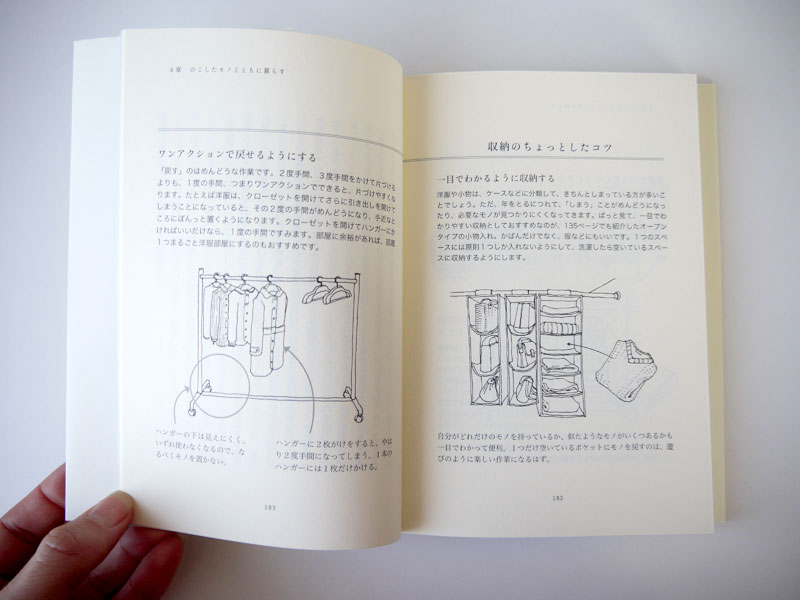 収納のちょっとしたコツ
一目でわかるように収納する
洋服や小物は、ケースなどに分類して、きちんとしまっている方が多いこ
とでしょう。ただ、年をとるにつれて、「しまう」ことがめんどうになっ
たり、必要なモノが見つかりにくくなってきます。ぱっと見て、一目でわ
かりやすい収納としておすすめなのが、135ページでも紹介したオープン
タイプの小物入れ。かばんだけでなく、服などにもいいです。1つのスペ
ースには原則1つしか入れないようにして、洗濯したら空いているスペー
スに収納するようにします。
自分がどれだけのモノを持っているか、似たようなモノがいくつあるかも
一目でわかって便利。1つだけ空いているポケットにモノを戻すのは、遊
びのように楽しい作業になるはず。
182
4章 のこしたモノとともに暮らす
ワンアクションで戻せるようにする
「戻す」のはめんどうな作業です。2度手間、3度手間をかけて片づける
よりも、1度の手間、つまりワンアクションでできると、片づけやすくな
ります。たとえば洋服は、クローゼットを開けてさらに引き出しを開けて
しまうことになっていると、その2度の手間がめんどうになり、手近なと
ころにぽんっと置くようになります。クローゼットを開けてハンガーにか
ければいいだけなら、1度の手間ですみます。部屋に余裕があれば、部屋
1つまるごと洋服部屋にするのもおすすめです。
ハンガーの下は見えにくく、
いずれ使わなくなるので、な
るべくモノを置かない。
ハンガーに2枚がけをすると、やは
り2度手間になってしまう。1本の
ハンガーには1枚だけかける。
183